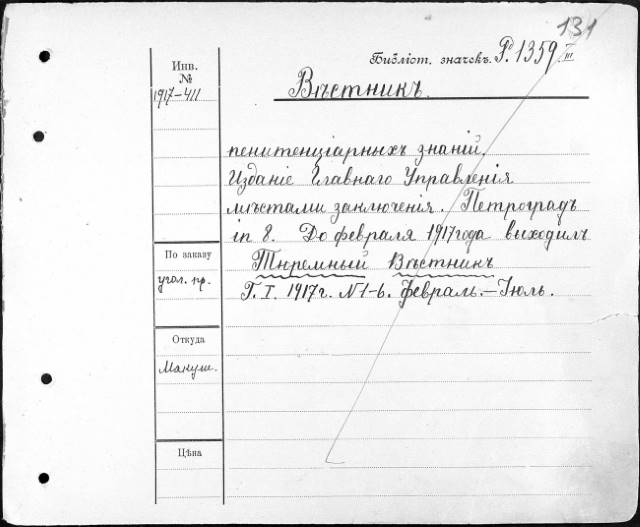 131
Библіот. значекъ. Рd 1359 / III
Инв.
№
1917-411
Вѣстникъ.
пенитенціарныхъ знаній.
Изданіе Главнаго Управленія
мѣстами заключенія. Петроградъ
in 8. До февраля 1917 года выходилъ
Тюремный Вѣстникъ
Г. I. 1917 г. N 1-6. Февраль.-Іюль.
По заказу
угол. пр.
Откуда
Цѣна